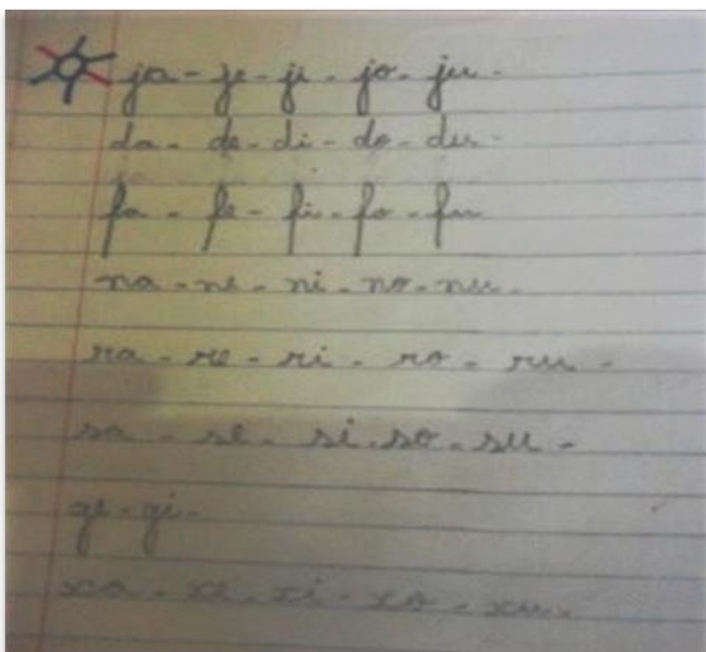 ja - je - ji - jo - ju -
da - de - di - do - du -
fa - fe - fi - fo - fu
na - ne - ni - no - nu -
ra - re - ri - ro - ru -
sa - se - si - so - su -
ge - gi -
xa - xe - xi - xo - xu -